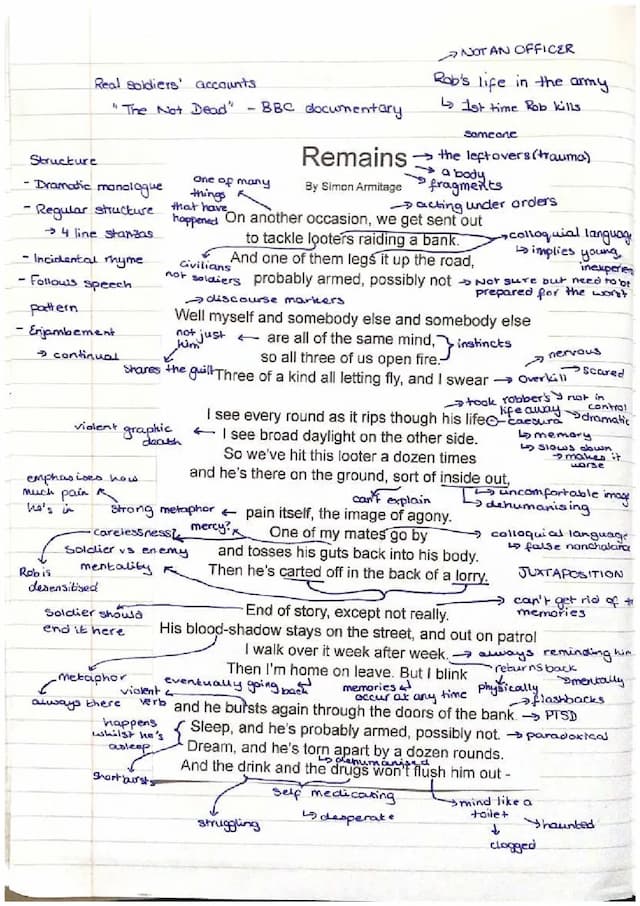 → NOT AN OFFICER
Real soldiers' accounts
Rob's life in the army
"The Not Dead" - BBC documentary
↳ 1st time Rob kills
someone
Structure
- Dramatic monologue
- Regular structure
→ 4 line stanzas
- Incidental rhyme
- Follows speech
pattern
- Enjambement
→ continual
Remains
→ the leftovers (trauma)
→ a body
→ fragments
By Simon Armitage
one of many
things
that have
happened
→ acting under orders
On another occasion, we get sent out
to tackle looters raiding a bank.
→ colloquial language
↳ implies young,
And one of them legs it up the road,
civilians
not soldiers
probably armed, possibly not
→ Not sure but need to be
prepared for the worst
→ discourse markers
Well myself and somebody else and somebody else
are all of the same mind,
not just
him
} instincts
so all three of us open fire.
shares the guilt
Three of a kind all letting fly, and I swear
→ overkill
→ nervous
→ scared
→ took robber's
life away
I see every round as it rips though his life
- caesura
→ not in
control
→ dramatic
violent graphic
death
I see broad daylight on the other side.
↳ memory
↳ slows down
→ makes it
worse
So we've hit this looter a dozen times
and he's there on the ground, sort of inside out,
can't explain
↳ uncomfortable image
↳ dehumanising
emphasises how
much pain
he's in
strong metaphor
pain itself, the image of agony.
mercy?
carelessness?
One of my mates go by
→ colloquial language
↳ false nonchalance
Soldier vs enemy
mentality
and tosses his guts back into his body.
Rob is
desensitised
Then he's carted off in the back of a lorry.
JUXTAPOSITION
→ can't get rid of
memories
Soldier should
end it here
End of story, except not really.
His blood-shadow stays on the street, and out on patrol
I walk over it week after week.
→ always reminding him
Then I'm home on leave. But I blink
returns back
→ mentally
physically
metaphor
always there
violent
verb
eventually going
back
memories
occur at any time
→ flashbacks
and he bursts again through the doors of the bank.
→ PTSD
happens
whilst he's
asleep
Sleep, and he's probably armed, possibly not.
→ paradoxical
Dream, and he's torn apart by a dozen rounds.
↳ dehumanised
short bursts
And the drink and the drugs won't flush him out -
self medicating
↳ desperate
struggling
→ mind like a
toilet
→ haunted
clogged